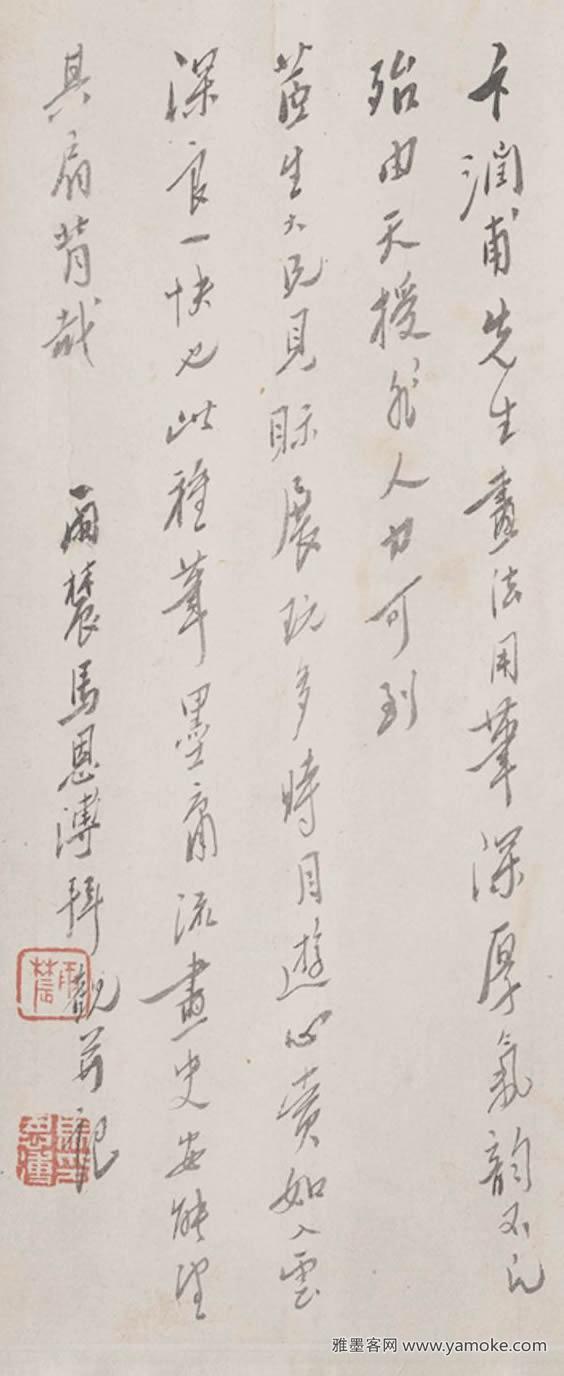 卞潤甫先生畫法用筆深厚氣韵不凡
殆由天授非人力可到
生大兄見眎展玩多時目遊心賞如入雲
深良一快也此種筆墨庸流畫史安能望
其肩背哉 雨辳馬恩溥拜觀并
雨辳
雅墨客网 www.yamoke.com